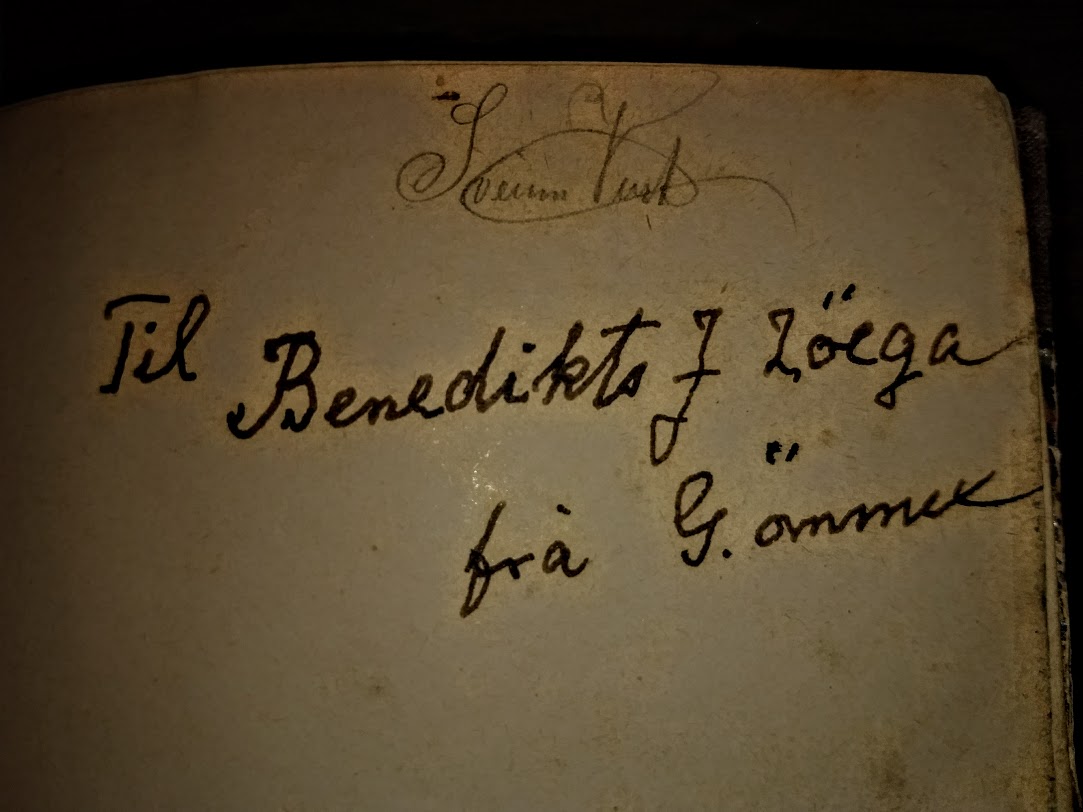 Sveinn
Til Benedikts J Zöega
frá G. ömmu